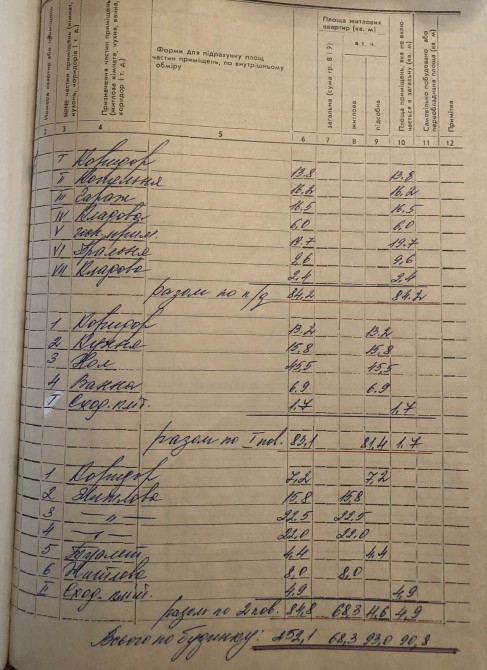 Номери квартир або
кухонь, коридорів і т. д.)
Призначення частин приміщень
(житлова кімната, кухня, ванна,
коридор і т. д.)
Форми для підрахунку площ
частин приміщень, по внутрішньому
обміру
Площа житлових
квартир (кв. м)
загальна (сума гр. 8 і 9)
в т. ч.
житлова
підсобна
Площа приміщень, яка не вклю-
чається в загальну (кв. м)
Самовільно побудована або
переобладнана площа (кв. м)
Примітка
2 3 4 5 6 7 8 9 10 11 12
I Коридор 13.8 13.8
II Котельня 16.2 16.2
III Гараж 16.5 16.5
IV Кладова 6.0 6.0
V 19.7 19.7
VI Пральня 9.6 9.6
VII Кладова 2.4 2.4
разом по п/д 84.2 84.2
1 Коридор 13.2 13.2
2 Кухня 15.8 15.8
3 Хол 45.5 45.5
4 Ванна 6.9 6.9
I Сход. кліт. 1.7 1.7
разом по I пов. 83,1 81,4 1.7
1 Коридор 7,2 7,2
2 Житлова 15,8 15,8
3 —"— 22.5 22.5
4 —"— 22.0 22.0
5 Туалет 4.4 4.4
6 Житлова 8,0 8,0
II Сход. кліт. 4.9 4,9
разом по 2 пов. 84,8 68,3 11,6 4,9
Всього по будинку: 252,1 68,3 93,0 90,8